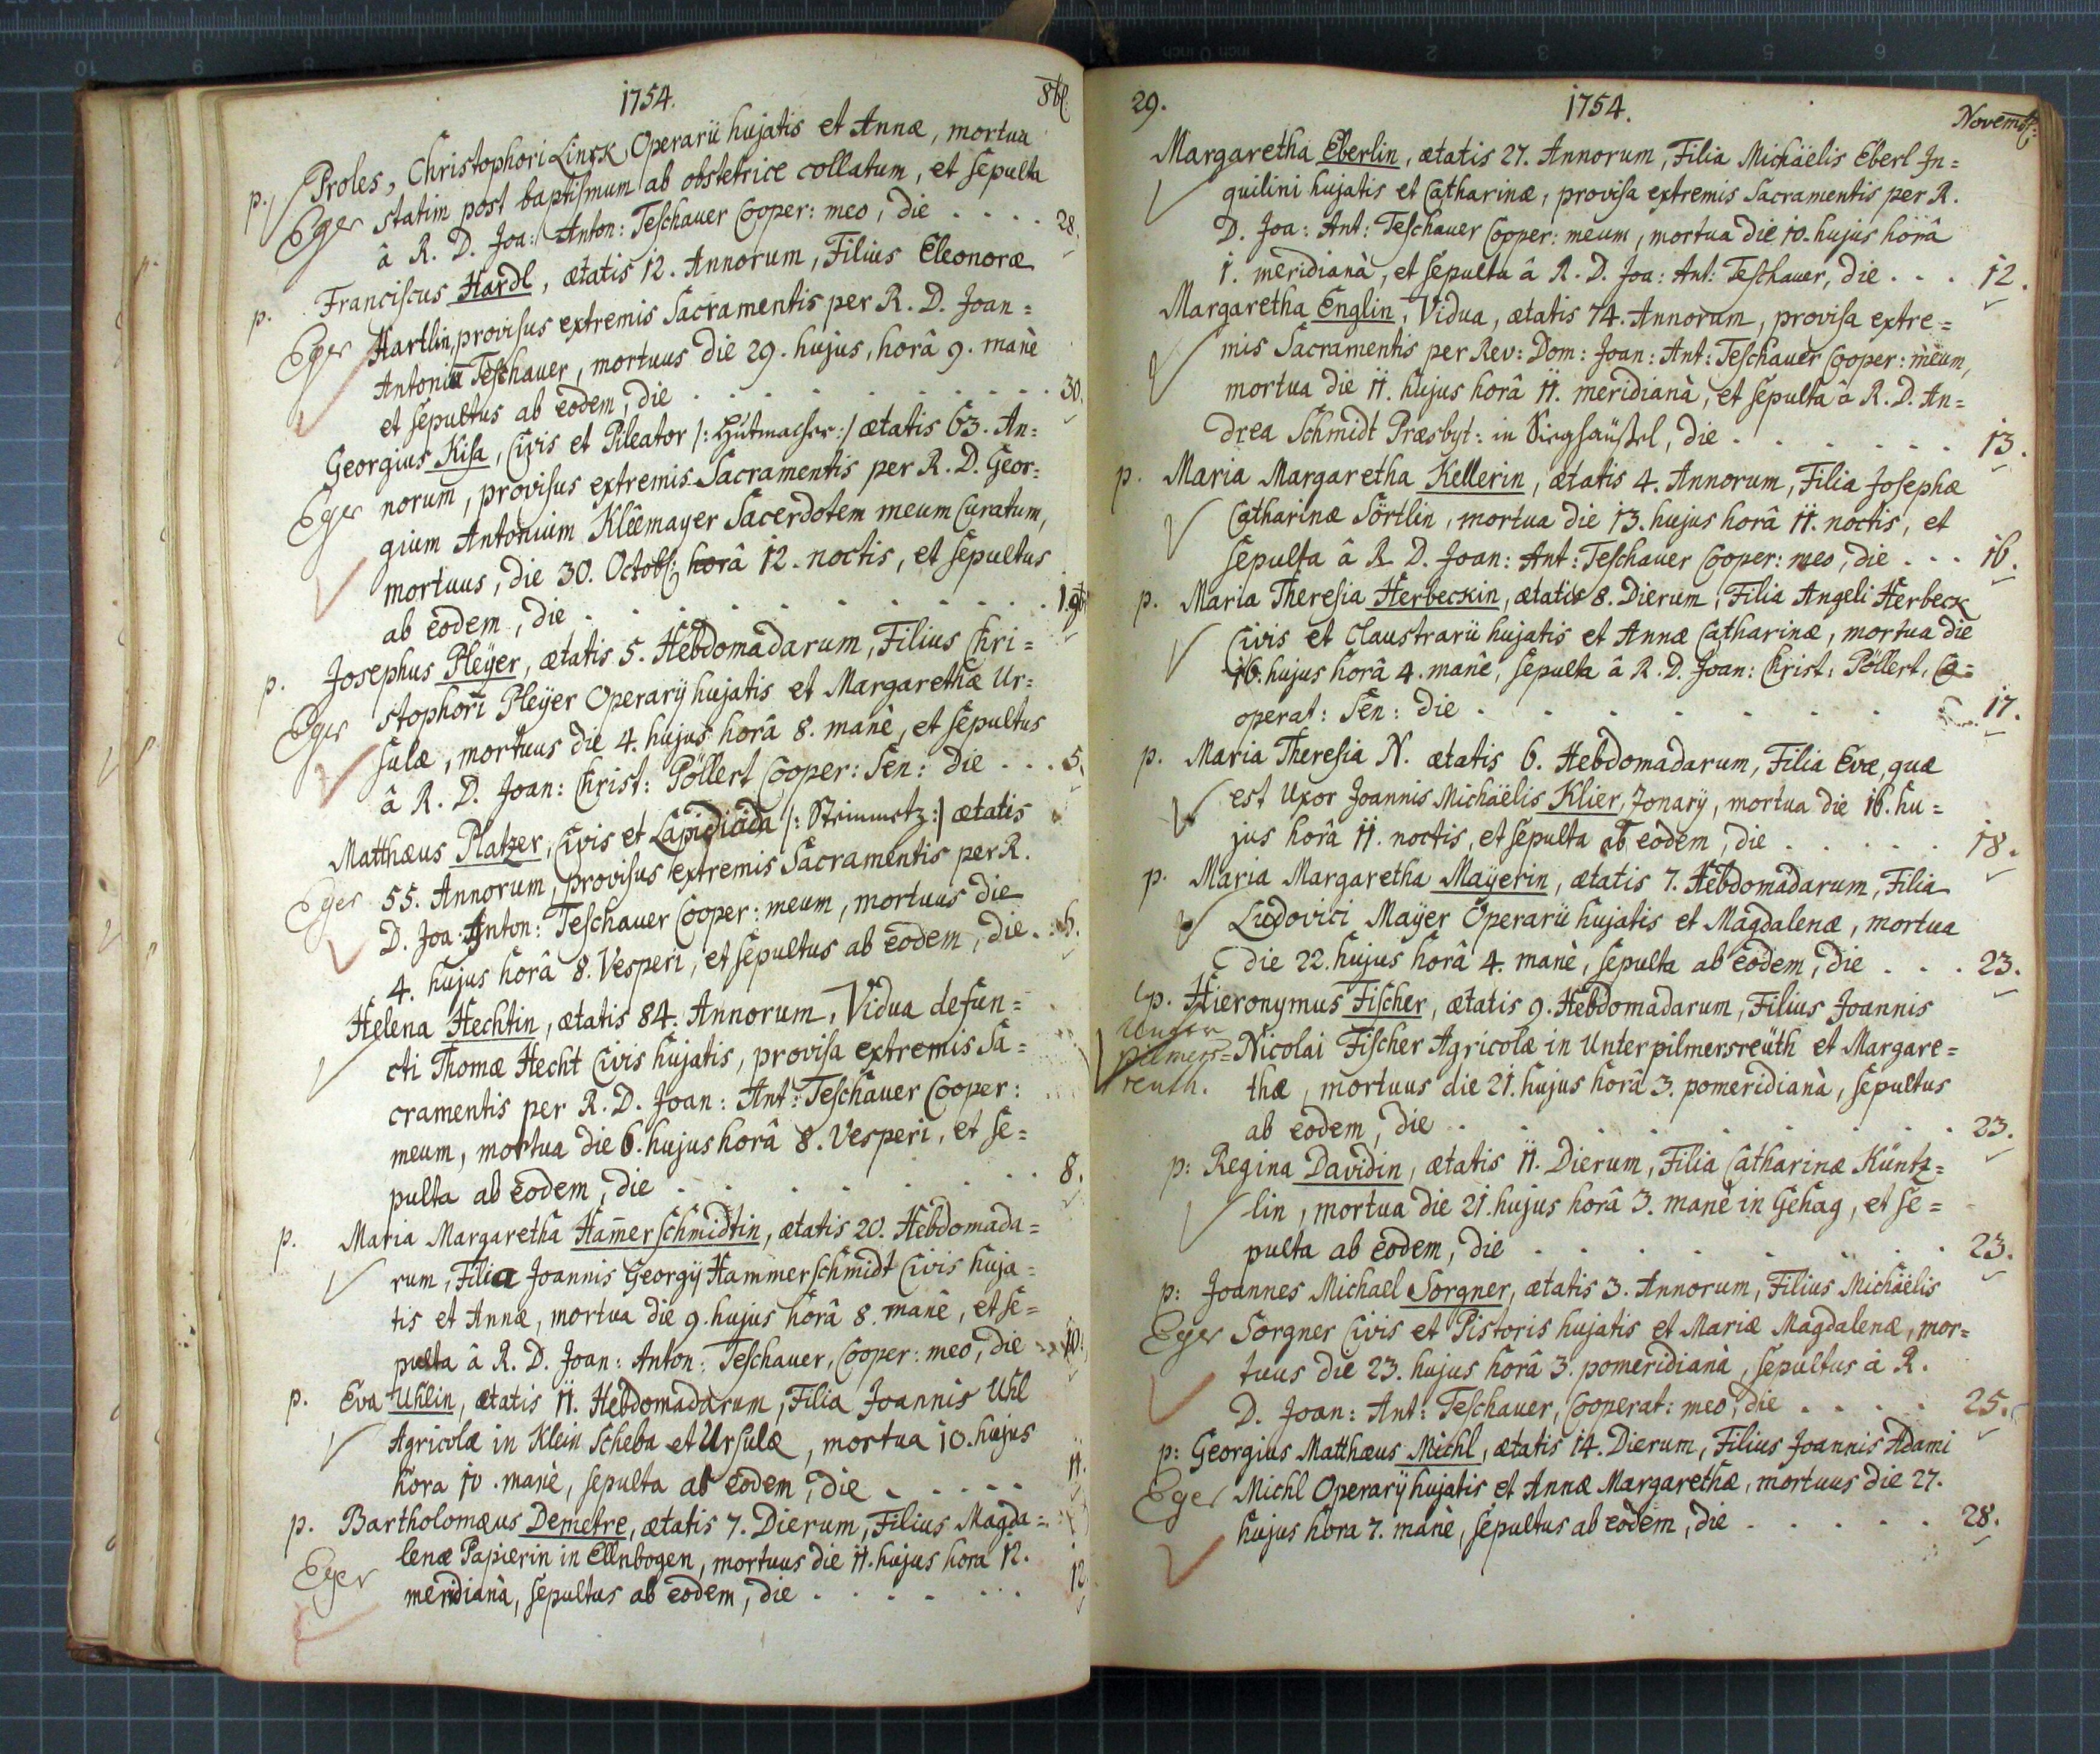 1754.
8b:
p. Proles, Christophori Linck Operarii hujatis et Annæ, mortua
Eger statim post baptismum ab obstetrice collatum, et sepulta
â R. D. Joa: Anton: Teschauer Cooper: meo, die . . . . 28.
p. Franciscus Hardl, ætatis 12. Annorum, Filius Eleonoræ
Eger Hartlin, provisus extremis Sacramentis per R. D. Joan=
Antoniu Teschauer, mortuus die 29. hujus, horâ 9. manè
et sepultus ab eodem, die . . . . . . . 30.
Georgius Kisa, Civis et Pileator /: Hutmacher :/ ætatis 63. An:
Eger norum, provisus extremis Sacramentis per R. D. Geor:
gium Antonium Kleêmayer Sacerdotem meum Curatum,
mortuus, die 30. Octob: horâ 12. noctis, et sepultus
ab eodem, die . . . . . . . . . 1. 9b
p. Josephus Pleÿer, ætatis 5. Hebdomadarum, Filius Chri=
Eger stophori Pleÿer Operarÿ hujatis et Margarethæ Ur:
sulæ, mortuus die 4. hujus horâ 8. manè, et sepultus
â R. D. Joan: Christ: Pöllert Cooper: Sen: die . . . 5.
Matthæus Platzer, Civis et Lapidicida /: Steinmetz :/ ætatis
Eger 55. Annorum, provisus extremis Sacramentis per R.
D. Joa: Anton: Teschauer Cooper: meum, mortuus die
4. hujus horâ 8. Vesperi, et sepultus ab eodem, die . . 6.
Helena Hechtin, ætatis 84. Annorum, Vidua defun=
cti Thomæ Hecht Civis hujatis, provisa extremis Sa=
cramentis per R. D. Joan: Ant: Teschauer Cooper:
meum, mortua die 6. hujus horâ 8. Vesperi, et se=
pulta ab eodem, die . . . . . . . 8.
p. Maria Margaretha Ham̄erschmidtin, ætatis 20. Hebdomada=
rum, Filia Joannis Georgÿ Hammerschmidt Civis huja=
tis et Annæ, mortua die 9. hujus horâ 8. manè, et se=
pulta â R. D. Joan: Anton: Teschauer, Cooper: meo, die 10.
p. Eva Uhlin, ætatis 11. Hebdomadarum, Filia Joannis Uhl
Agricolæ in Klein Scheba et Ursulæ, mortua 10. hujus
hora 10. manè, sepulta ab eodem, die . . . . . 11.
p. Bartholomæus Demetre, ætatis 7. Dierum, Filius Magda=
Eger lenæ Papierin in Ellnbogen, mortuus die 11. hujus hora 12.
meridianà, sepultus ab eodem, die . . . . . . . 12
29.
1754.
Novemb:
Margaretha Eberlin, ætatis 27. Annorum, Filia Michäelis Eberl In=
quilini hujatis et Catharinæ, provisa extremis Sacramentis per R.
D. Joa: Ant: Teschauer Cooper: meum, mortua die 10. hujus horâ
1. meridianà, et sepulta â R. D. Joa: Ant: Teschauer, die . . . 12.
Margaretha Englin, Vidua, ætatis 74. Annorum, provisa extre=
mis Sacramentis per Rev: Dom: Joan: Ant: Teschauer Cooper: meum,
mortua die 11. hujus horâ 11. meridianà, et sepulta â R. D. An=
drea Schmidt Præsbyt: in Siechhäußel, die . . . . . . . 13.
p. Maria Margaretha Kellerin, ætatis 4. Annorum, Filia Josephæ
Catharinæ Sörtlin, mortua die 13. hujus horâ 11. noctis, et
sepulta â R. D. Joan: Ant: Teschauer Cooper: meo, die . . . 16.
p. Maria Theresia Herbeckin, ætatis 8. Dierum, Filia Angeli Herbeck
Civis et Claustrarii hujatis et Annæ Catharinæ, mortua die
16. hujus horâ 4. manè, sepulta â R. D. Joan: Christ: Pöllert, Co=
operat: Sen: die . . . . . . . 17.
p. Maria Theresia N. ætatis 6. Hebdomadarum, Filia Evæ, quæ
est Uxor Joannis Michäelis Klier, Zonarÿ, mortua die 16. hu=
jus horâ 11. noctis, et sepulta ab eodem, die . . . . . 18.
p. Maria Margaretha Maÿerin, ætatis 7. Hebdomadarum, Filia
Ludovici Maÿer Operarii hujatis et Magdalenæ, mortua
die 22. hujus horâ 4. manè, sepulta ab eodem, die . . . 23.
p. Hieronymus Fischer, ætatis 9. Hebdomadarum, Filius Joannis
Unter
pilmers= Nicolai Fischer Agricolæ in Unterpilmersreüth et Margare=
reuth. thæ, mortuus die 21. hujus horâ 3. pomeridianà, sepultus
ab eodem, die . . . . . . . . 23.
p: Regina Davidin, ætatis 11. Dierum, Filia Catharinæ Küntz=
lin, mortua die 21. hujus horâ 3. manè in Gehag, et se=
pulta ab eodem, die . . . . . . . 23.
p: Joannes Michael Sorgner, ætatis 3. Annorum, Filius Michäelis
Eger Sorgner Civis et Pistoris hujatis et Mariæ Magdalenæ, mor=
tuus die 23. hujus horâ 3. pomeridianà, sepultus â R.
D. Joan: Ant: Teschauer, Cooperat: meo, die . . . . 25.
p: Georgius Matthæus Michl, ætatis 14. Dierum, Filius Joannis Adami
Eger Michl Operarÿ hujatis et Annæ Margarethæ, mortuus die 27.
hujus hora 7. manè, sepultus ab eodem, die . . . . . 28.